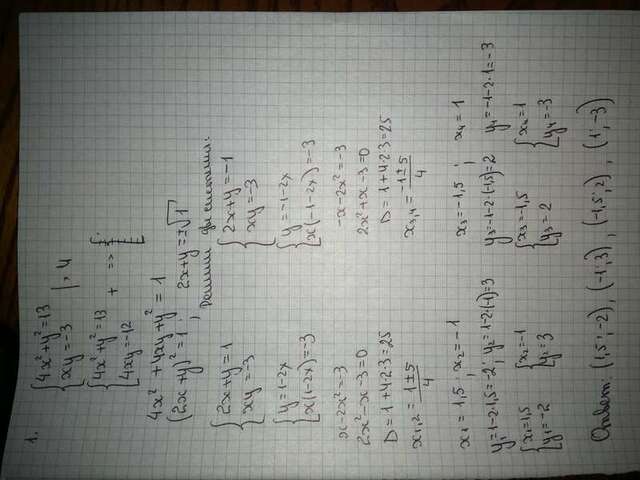 1.
{4x²+y²=13
{xy=-3 | ·4
{4x²+y²=13
{4xy=-12 + => {
4x²+4xy+y²=1
(2x+y)²=1 ; 2x+y=±√1
Решим две системы:
{2x+y=1
{xy=-3
{y=1-2x
{x(1-2x)=-3
x-2x²=-3
2x²-x-3=0
D=1+4·2·3=25
x₁,₂=(1±5)/4
x₁=1,5 ; x₂=-1
y₁=1-2·1,5=-2; y₂=1-2·(-1)=3
{x₁=1,5 {x₂=-1
{y₁=-2 {y₂=3
{2x+y=-1
{xy=-3
{y=-1-2x
{x(-1-2x)=-3
-x-2x²=-3
2x²+x-3=0
D=1+4·2·3=25
x₃,₄=(-1±5)/4
x₃=-1,5 ; x₄=1
y₃=-1-2·(-1,5)=2 y₄=-1-2·1=-3
{x₃=-1,5 {x₄=1
{y₃=2 {y₄=-3
Ответ: (1,5; -2), (-1; 3), (-1,5; 2), (1; -3)